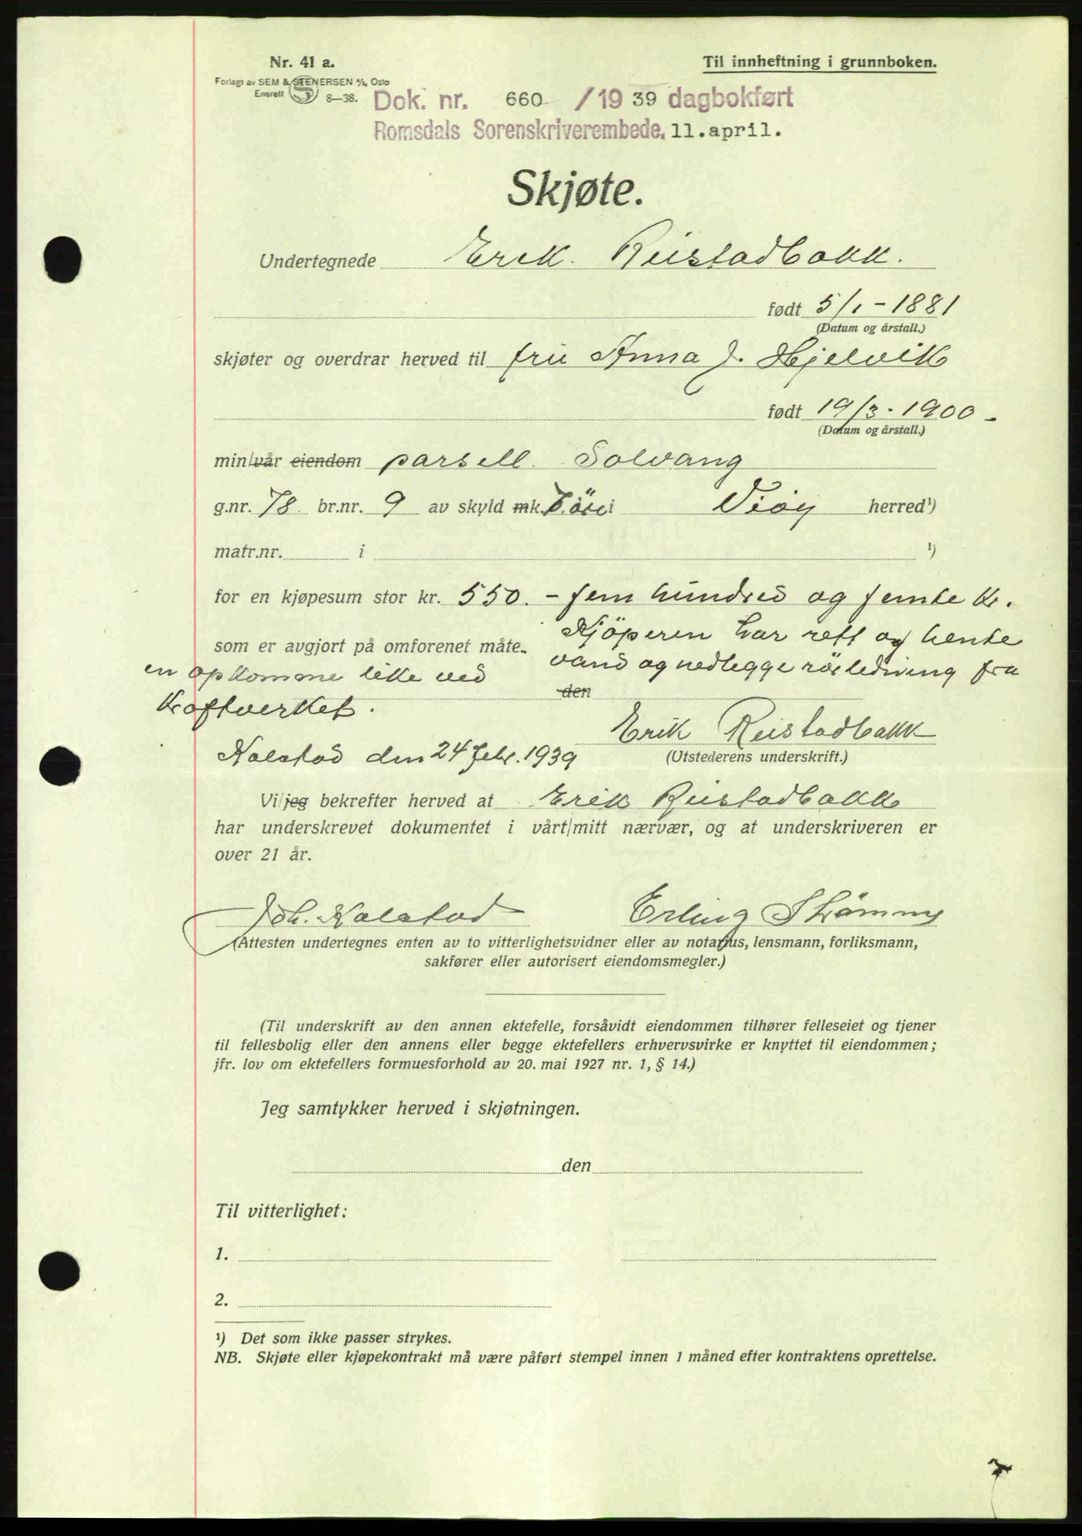 Nr. 41 a.
Til innheftning i grunnboken.
Forlagt av SEM & STENERSEN A/S, Oslo
Enerett S 8—38.
Dok. nr. 660 /19 39 dagbokført
Romsdals Sorenskriverembede, 11.april.
Skjøte.
Undertegnede Erik Reistadbakk.
født 5/1 - 1881
(Datum og årstall.)
skjøter og overdrar herved til fru Anna J. Hjelvik
født 19/3 - 1900 -
(Datum og årstall.)
min/vår eiendom parsell Solvang
g.nr. 78 br.nr. 9 av skyld mk. 7 øre i Veøy herred¹)
matr.nr. i ¹)
for en kjøpesum stor kr. 550. - fem hundred og femte kr.
som er avgjort på omforenet måte. Kjöperen har rett og hente
vand og nedlegge rörledning fra
en opkomme like ved
den
Kraftverket.
Erik Reistadbakk
Kolstad den 24 febr. 1939
(Utstederens underskrift.)
Vi/jeg bekrefter herved at Erik Reistadbakk
har underskrevet dokumentet i vårt/mitt nærvær, og at underskriveren er
over 21 år.
Joh. Kolstad Erling
(Attesten undertegnes enten av to vitterlighetsvidner eller av notarius, lensmann, forliksmann,
sakfører eller autorisert eiendomsmegler.)
(Til underskrift av den annen ektefelle, forsåvidt eiendommen tilhører felleseiet og tjener
til fellesbolig eller den annens eller begge ektefellers erhvervsvirke er knyttet til eiendommen;
jfr. lov om ektefellers formuesforhold av 20. mai 1927 nr. 1, § 14.)
Jeg samtykker herved i skjøtningen.
den
Til vitterlighet:
1.
2.
¹) Det som ikke passer strykes.
NB. Skjøte eller kjøpekontrakt må være påført stempel innen 1 måned efter kontraktens oprettelse.